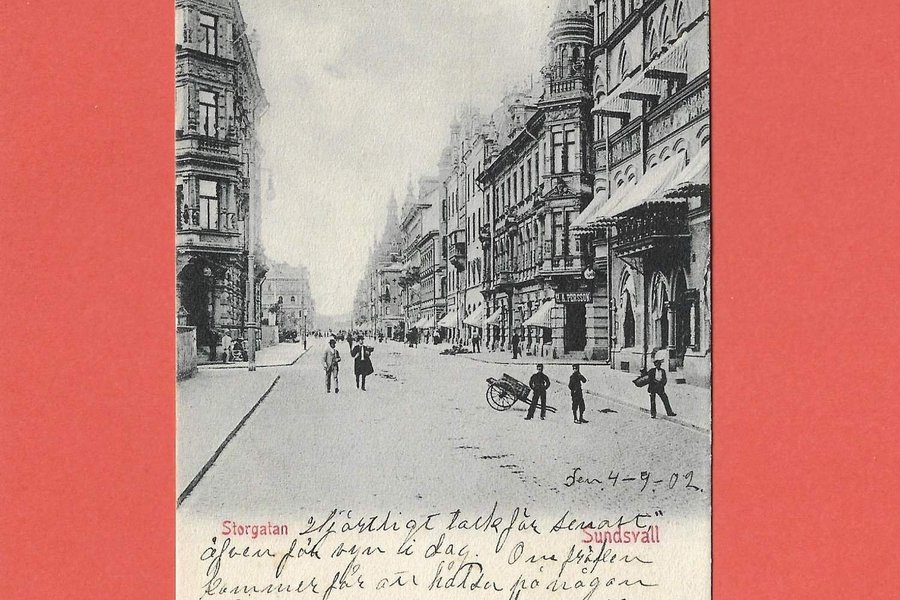 H. A. PERSSON
Den 4-9-02.
Storgatan
Sundsvall
Hjärtligt tack för senast,
äfven för vyn i dag. Om fröken
kommer för att hälsa på någon